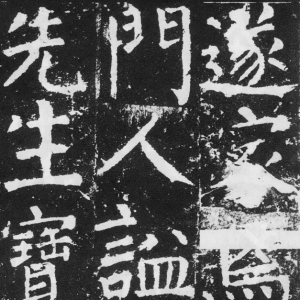 遂家焉
門人謚
先生寶